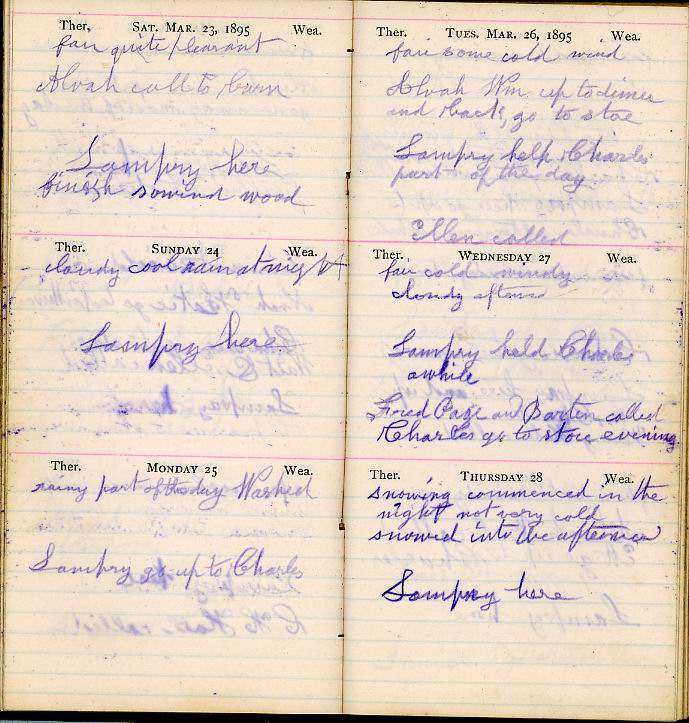 Ther. SAT. MAR. 23, 1895 Wea.
fair quite pleasant
Alvah call to barn
Lampry here
finish sowind wood
Ther. SUNDAY 24 Wea.
cloudy cool rain at night
Lampry here
Ther. MONDAY 25 Wea.
rainy part of the day Washed
Lampry go up to Charles
Ther. TUES. MAR. 26, 1895 Wea.
fair some cold wind
Alvah Wm up to dinner
and back, go to stoe
Lampry help Charles
part of the day
Ellen called
Ther. WEDNESDAY 27 Wea.
fair cold windy
cloudy afternoo
Lampry held Charles
awhile
Fred Page an Barten called
Charles go to stoe evening
Ther. THURSDAY 28 Wea.
snowing commenced in the
night not very cold
snowed into the afternoon
Lampry here